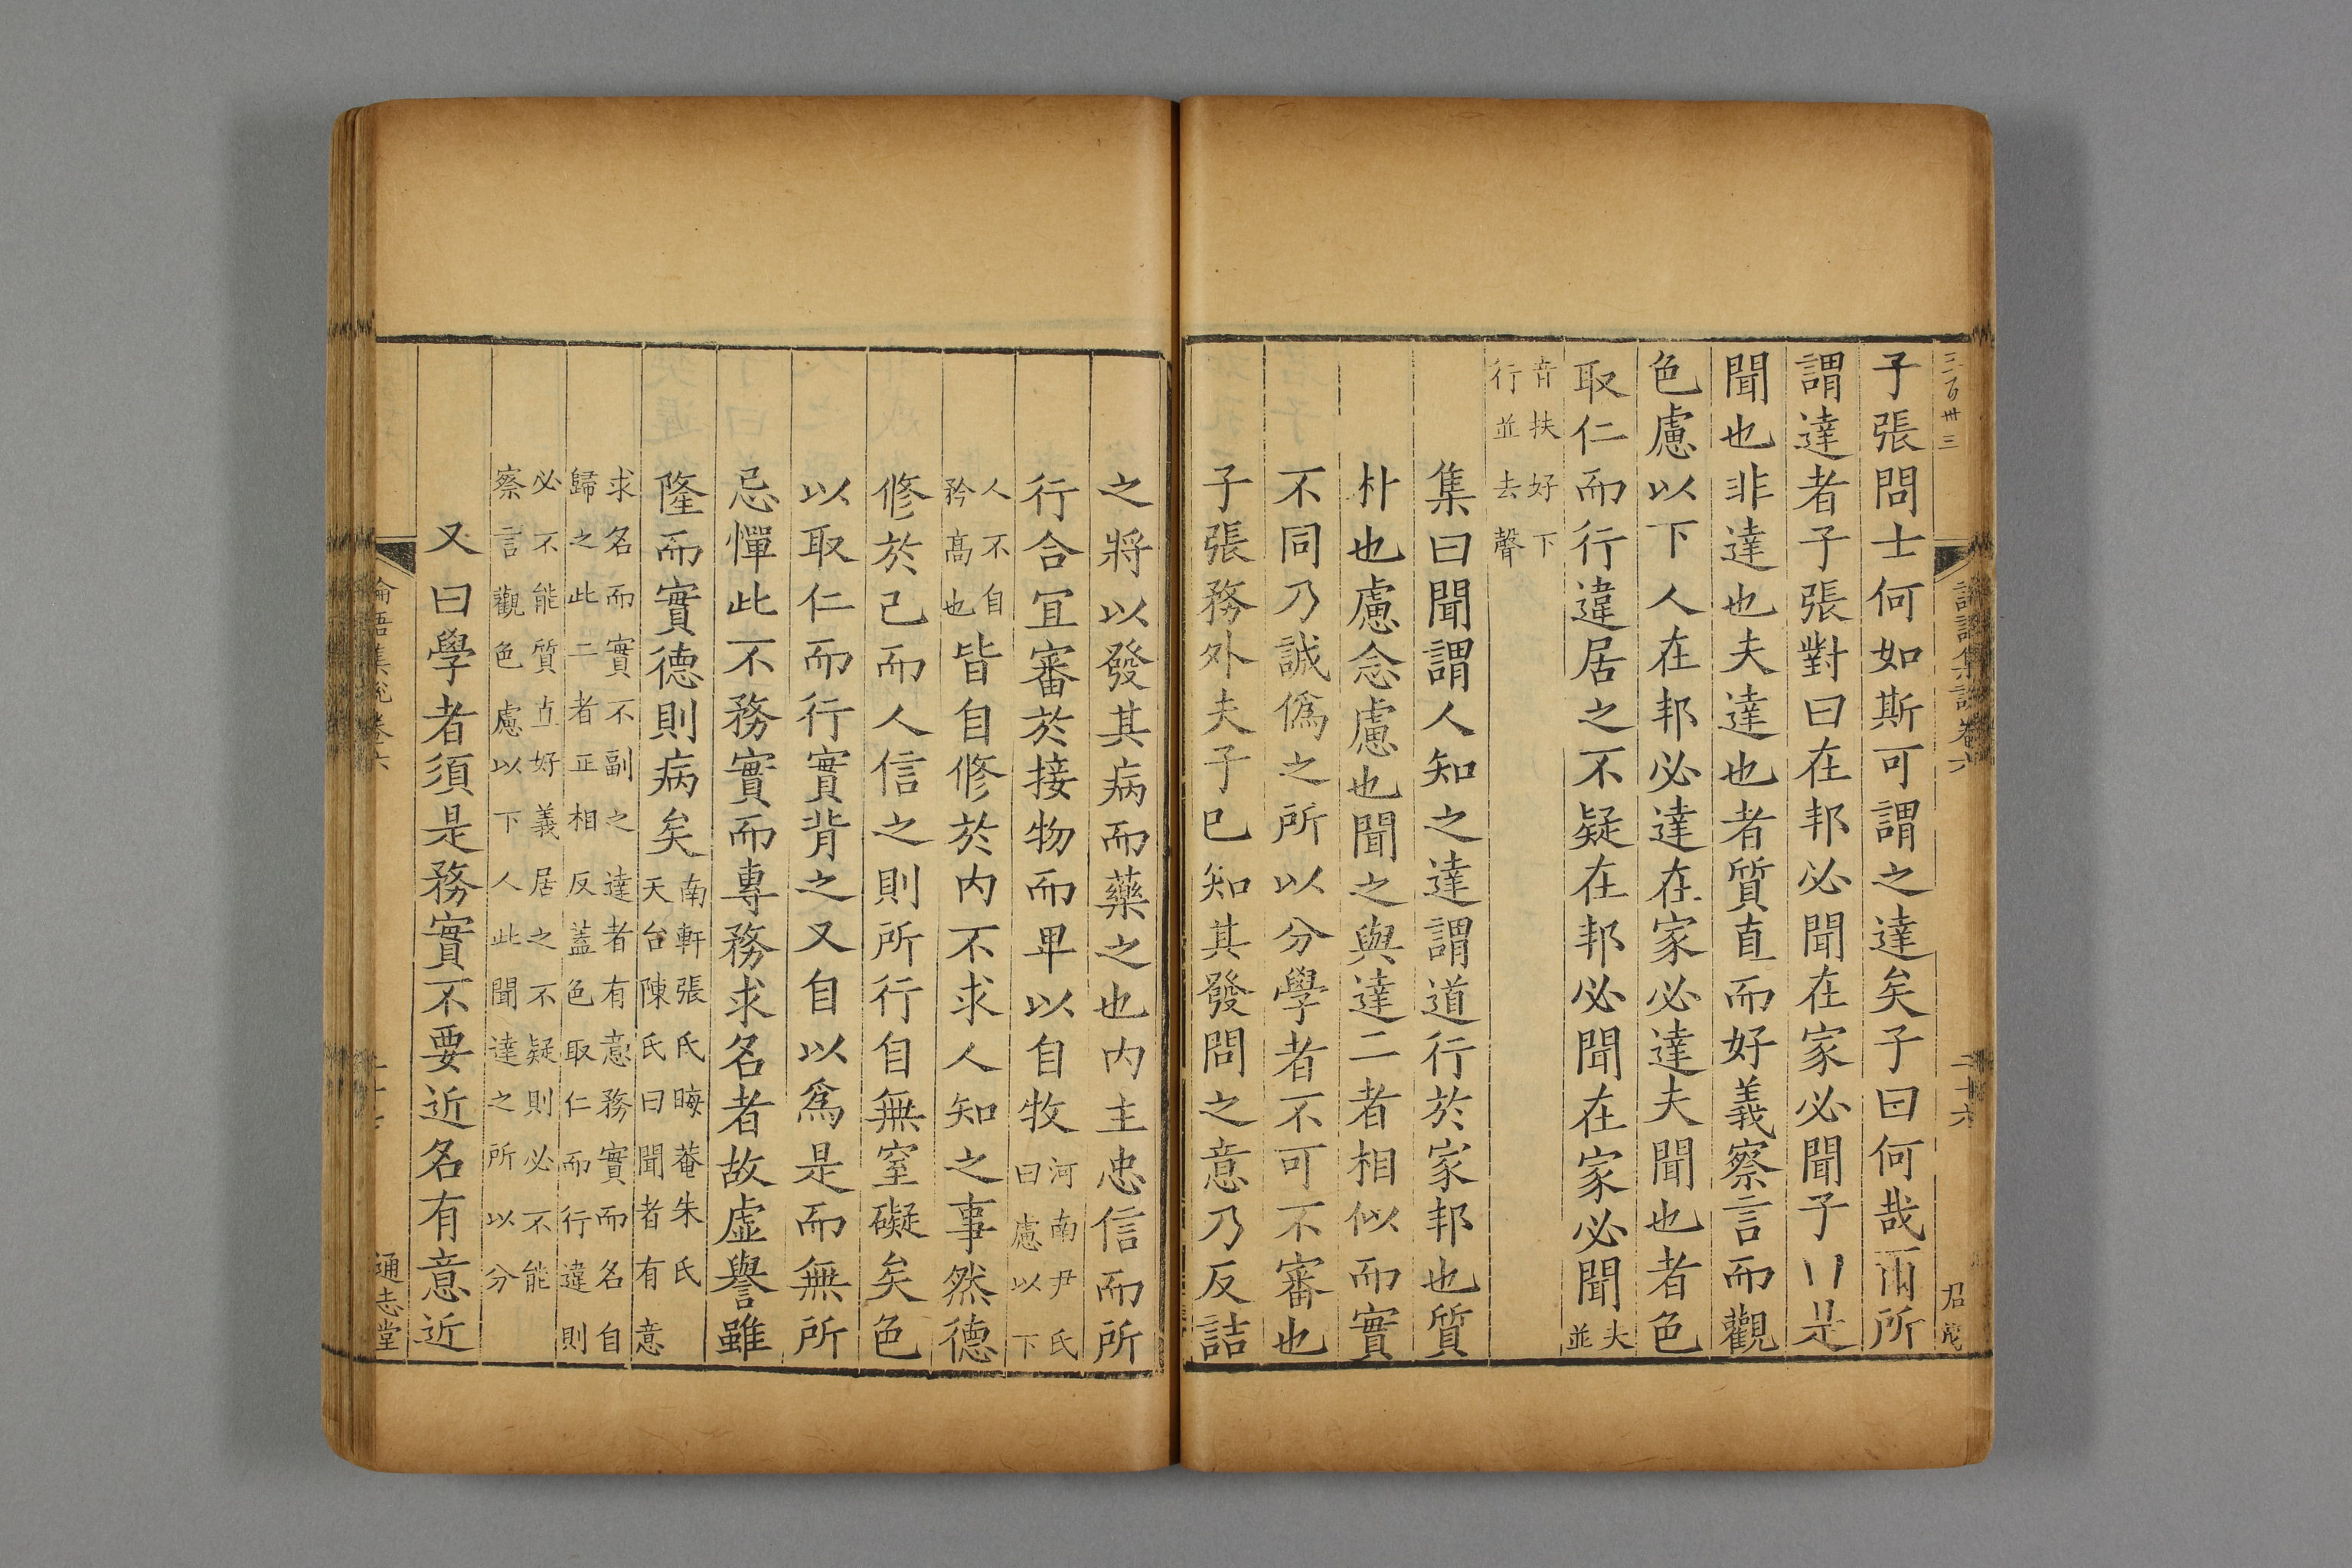 三百卅三
論語集說卷六
二十六
子張問士何如斯可謂之達矣子曰何哉爾所
謂達者子張對曰在邦必聞在家必聞子曰是
聞也非達也夫達也者質直而好義察言而觀
色慮以下人在邦必達在家必達夫聞也者色
取仁而行違居之不疑在邦必聞在家必聞夫並
音扶好下
行並去聲
集曰聞謂人知之達謂道行於家邦也質
朴也慮念慮也聞之與達二者相似而實
不同乃誠僞之所以分學者不可不審也
子張務外夫子巳知其發問之意乃反詰
之將以發其病而藥之也内主忠信而所
行合宜審於接物而卑以自牧河南尹氏曰慮以下
人不自矜高也皆自修於内不求人知之事然德
修於己而人信之則所行自無窒礙矣色
以取仁而行實背之又自以爲是而無所
忌憚此不務實而專務求名者故虛譽雖
隆而實德則病矣南軒張氏晦菴朱氏天台陳氏曰聞者有意
求名而實不副之達者有意務實而名自
歸之此二者正相反蓋色取仁而行違則
必不能質直好義居之不疑則必不能
察言觀色慮以下人此聞達之所以分
又曰學者須是務實不要近名有意近
論語集說卷六
通志堂